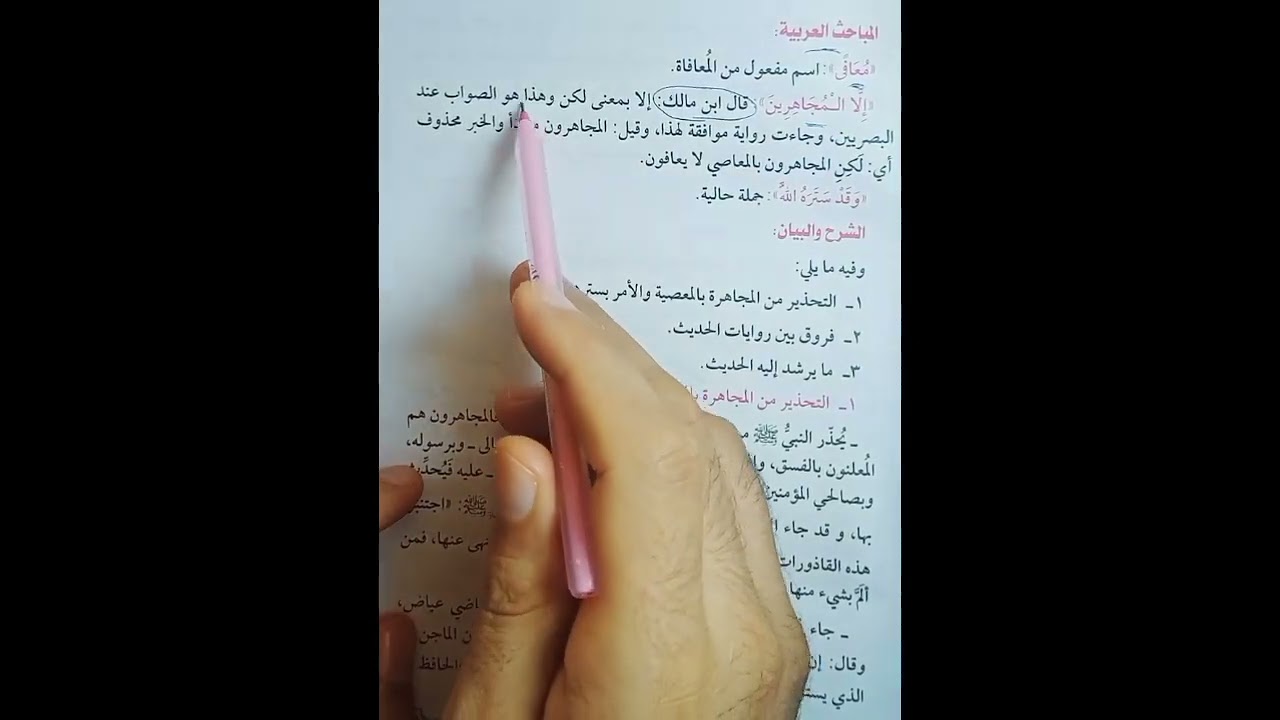 المباحث العربية:
«مُعَافًى»: اسم مفعول من المُعافاة.
«إِلَّا الْمُجَاهِرِينَ»: قال ابن مالك: إلا بمعنى لكن وهذا هو الصواب عند
البصريين، وجاءت رواية موافقة لهذا، وقيل: المجاهرون والخبر محذوف
أي: لَكِنِ المجاهرون بالمعاصي لا يعافون.
«وَقَدْ سَتَرَهُ اللهُ»: جملة حالية.
الشرح والبيان:
وفيه ما يلي:
١ـ التحذير من المجاهرة بالمعصية والأمر
٢ـ فروق بين روايات الحديث.
٣ـ ما يرشد إليه الحديث.
١ـ التحذير من المجاهرة
ـ يُحذّر النبيُّ ﷺ فالمجاهرون هم
المُعلنون بالفسق، ـ وبرسوله،
وبصالحي ـ عليه فَيُحدِّث
بها، و قد جاء ﷺ: «
هذه القاذورات عنها، فمن
ألَمَّ بشيء منها
ـ جاء عياض،
وقال: الماجن
الذي والحافظ